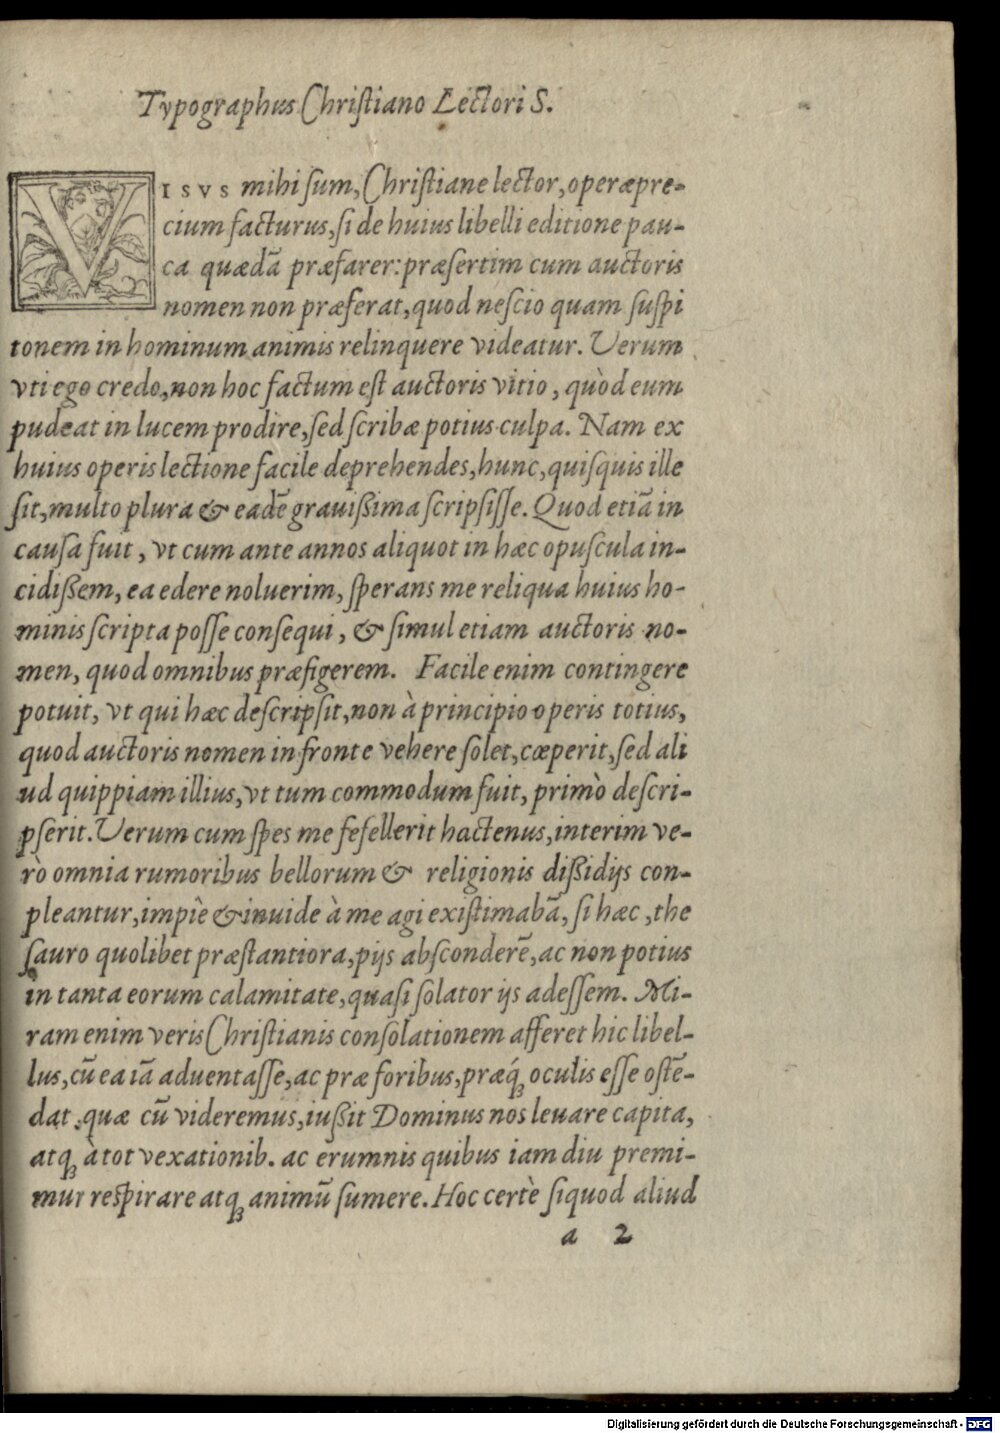 Typographus Christiano Lectori S.
VISVS mihi sum, Christiane lector, operæpre-
cium facturus, si de huius libelli editione pau-
ca quædā præfarer: præsertim cum auctoris
nomen non præferat, quod nescio quam suspi
tonem in hominum animis relinquere videatur. Verum
vti ego credo, non hoc factum est auctoris vitio, quòd eum
pudeat in lucem prodire, sed scribæ potius culpa. Nam ex
huius operis lectione facile deprehendes, hunc, quisquis ille
sit, multo plura & eadē grauißima scripsisse. Quod etiā in
causa fuit, vt cum ante annos aliquot in hæc opuscula in-
cidißem, ea edere noluerim, sperans me reliqua huius ho-
minis scripta posse consequi, & simul etiam auctoris no-
men, quod omnibus præfigerem. Facile enim contingere
potuit, vt qui hæc descripsit, non à principio operis totius,
quod auctoris nomen in fronte vehere solet, cœperit, sed ali
ud quippiam illius, vt tum commodum fuit, primò descri-
pserit. Verum cum spes me fefellerit hactenus, interim ve-
rò omnia rumoribus bellorum & religionis dißidijs con-
pleantur, impiè & inuide à me agi existimabā, si hæc, the
sauro quolibet præstantiora, pijs absconderē, ac non potius
in tanta eorum calamitate, quasi solator ijs adessem. Mi-
ram enim veris Christianis consolationem afferet hic libel-
lus, cū ea iā aduentasse, ac præ foribus, præq́ꝫ oculis esse ostē-
dat, quæ cū videremus, iußit Dominus nos leuare capita,
atqꝫ à tot vexationib. ac erumnis quibus iam diu premi-
mur respirare atqꝫ animū sumere. Hoc certè siquod aliud
a 2
Digitalisierung gefördert durch die Deutsche Forschungsgemeinschaft - DFG